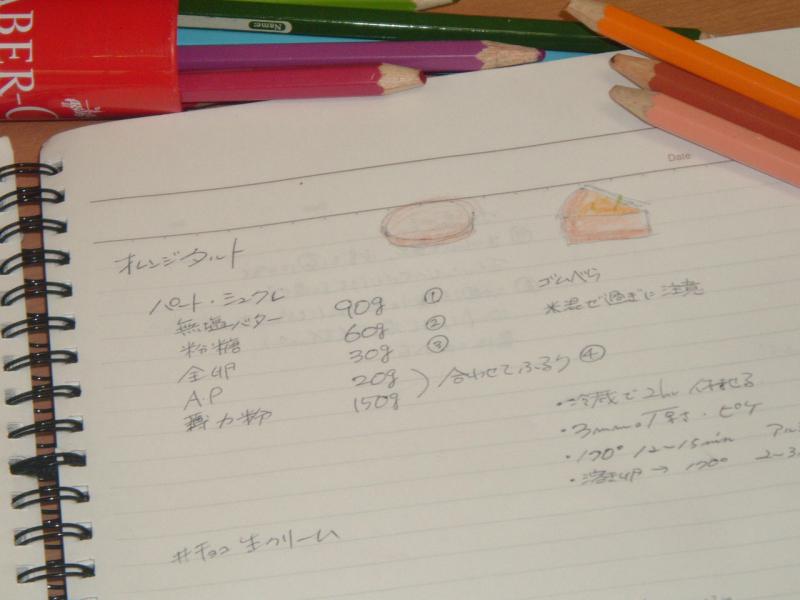 ABER-C
Name:
Date
オレンジタルト
パート・シュクレ
無塩バター 90g ①
粉糖 60g ②
全卵 30g ③
A.P 20g
薄力粉 150g
合わせてふるう ④
ゴムベら
※混ぜ過ぎに注意
・冷蔵で2hr 休ませる
・3mmの厚さ・ピケ
・170° 12~15min アル
・溶き卵 → 170° 2~3
#チョコ生クリーム